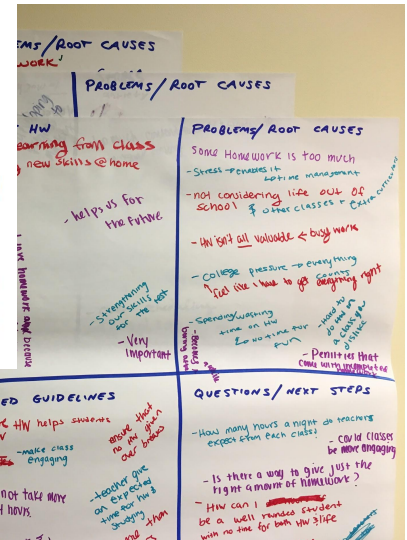 EMS/ROOT CAUSES
WORK'
PROBLEMS/ROOT CAUSES
HW
earning from class
new skills @home
- helps us for
the future
love homework
because
- Strengthening
our skills
for the test
- Very
important
PROBLEMS/ROOT CAUSES
Some Homework is too much
- Stress → creates it
↳ time management
- not considering life out of
school & other classes + extra curriculars
- HW isn't all valuable ← busy work
- college pressure → everything
counts
"feel like I have to get everything right
- Spending/wasting
time on HW
↳ no time for
fun
- Hard to
do HW in
a class you
dislike
becomes a
boring
- Penilties that
come with incomplete
ED GUIDELINES
HW helps students
- make class
engaging
ensure that
no HW given
over breaks
not take more
hours.
- teacher give
an expected
time for HW &
studying
than
QUESTIONS/NEXT STEPS
- How many hours a night do teachers
expect from each class?
- could classes
be more engaging
- Is there a way to give just the
right amount of homework?
- How can I
be a well rounded student
with no time for both HW & life